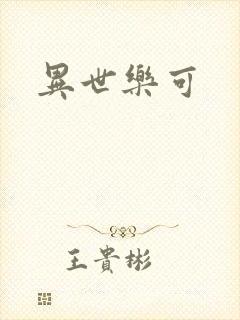 異世樂可
王貴彬